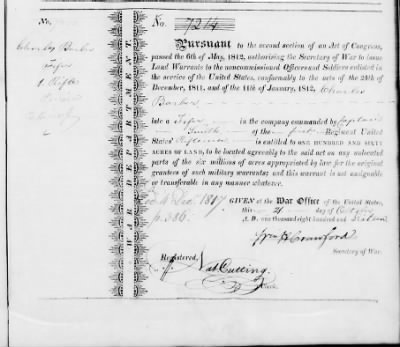 No.
No. 7214
Charles Barker
Fifer
1. Rifle
WAR DEPARTMENT
Pursuant to the second section of an Act of Congress,
passed the 6th of May, 1812, authorising the Secretary of War to issue
Land Warrants to the noncommissioned Officers and Soldiers enlisted in
the service of the United States, conformably to the acts of the 24th of
December, 1811, and of the 11th of January, 1812, Charles
Barker
late a Fifer in the company commanded by Captain
Smith of the first Regiment United
States' Riflemen is entitled to ONE HUNDRED AND SIXTY
ACRES OF LAND, to be located agreeably to the said act on any unlocated
parts of the six millions of acres appropriated by law for the original
grantees of such military warrants; and this warrant is not assignable
or transferable in any manner whatever.
Dec. 1817
p. 386.
GIVEN at the War Office of the United States,
this 21 day of
A. D. one thousand eight hundred and sixteen
Wm H Crawford
Secretary of War.
Registered,
Nat Cutting.
Clerk